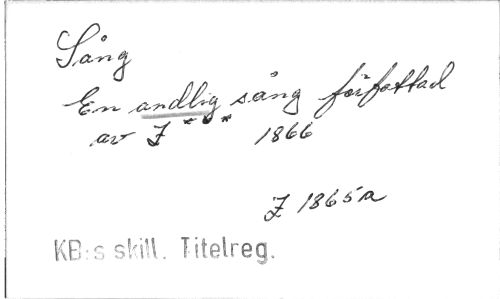 Sång
En andlig sång författad
av J * * * 1866
J 1865a
KB:s skill. Titelreg.